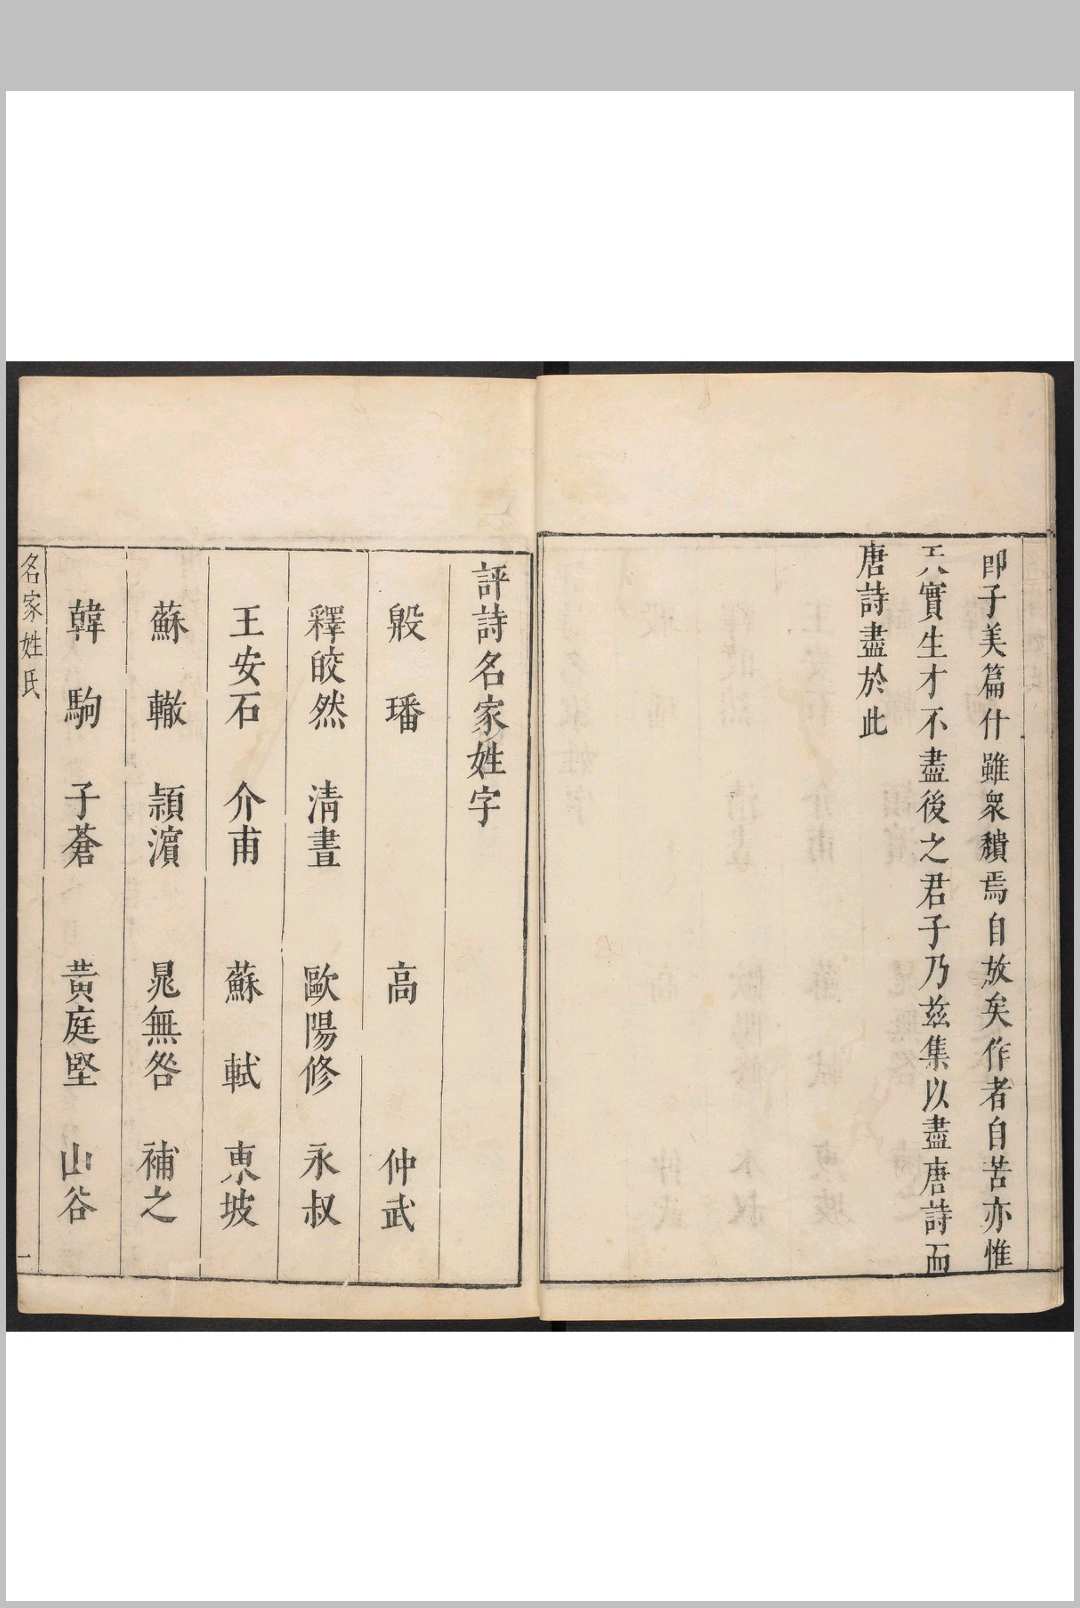 卽子美篇什雖衆穨焉自放矣作者自苦亦惟
天實生才不盡後之君子乃茲集以盡唐詩而
唐詩盡於此
評詩名家姓字
殷璠　高仲武
釋皎然　清晝　歐陽修　永叔
王安石　介甫　蘇軾　東坡
蘇轍　頴濵　晁無咎　補之
韓駒　子蒼　黃庭堅　山谷
名家姓氏　一